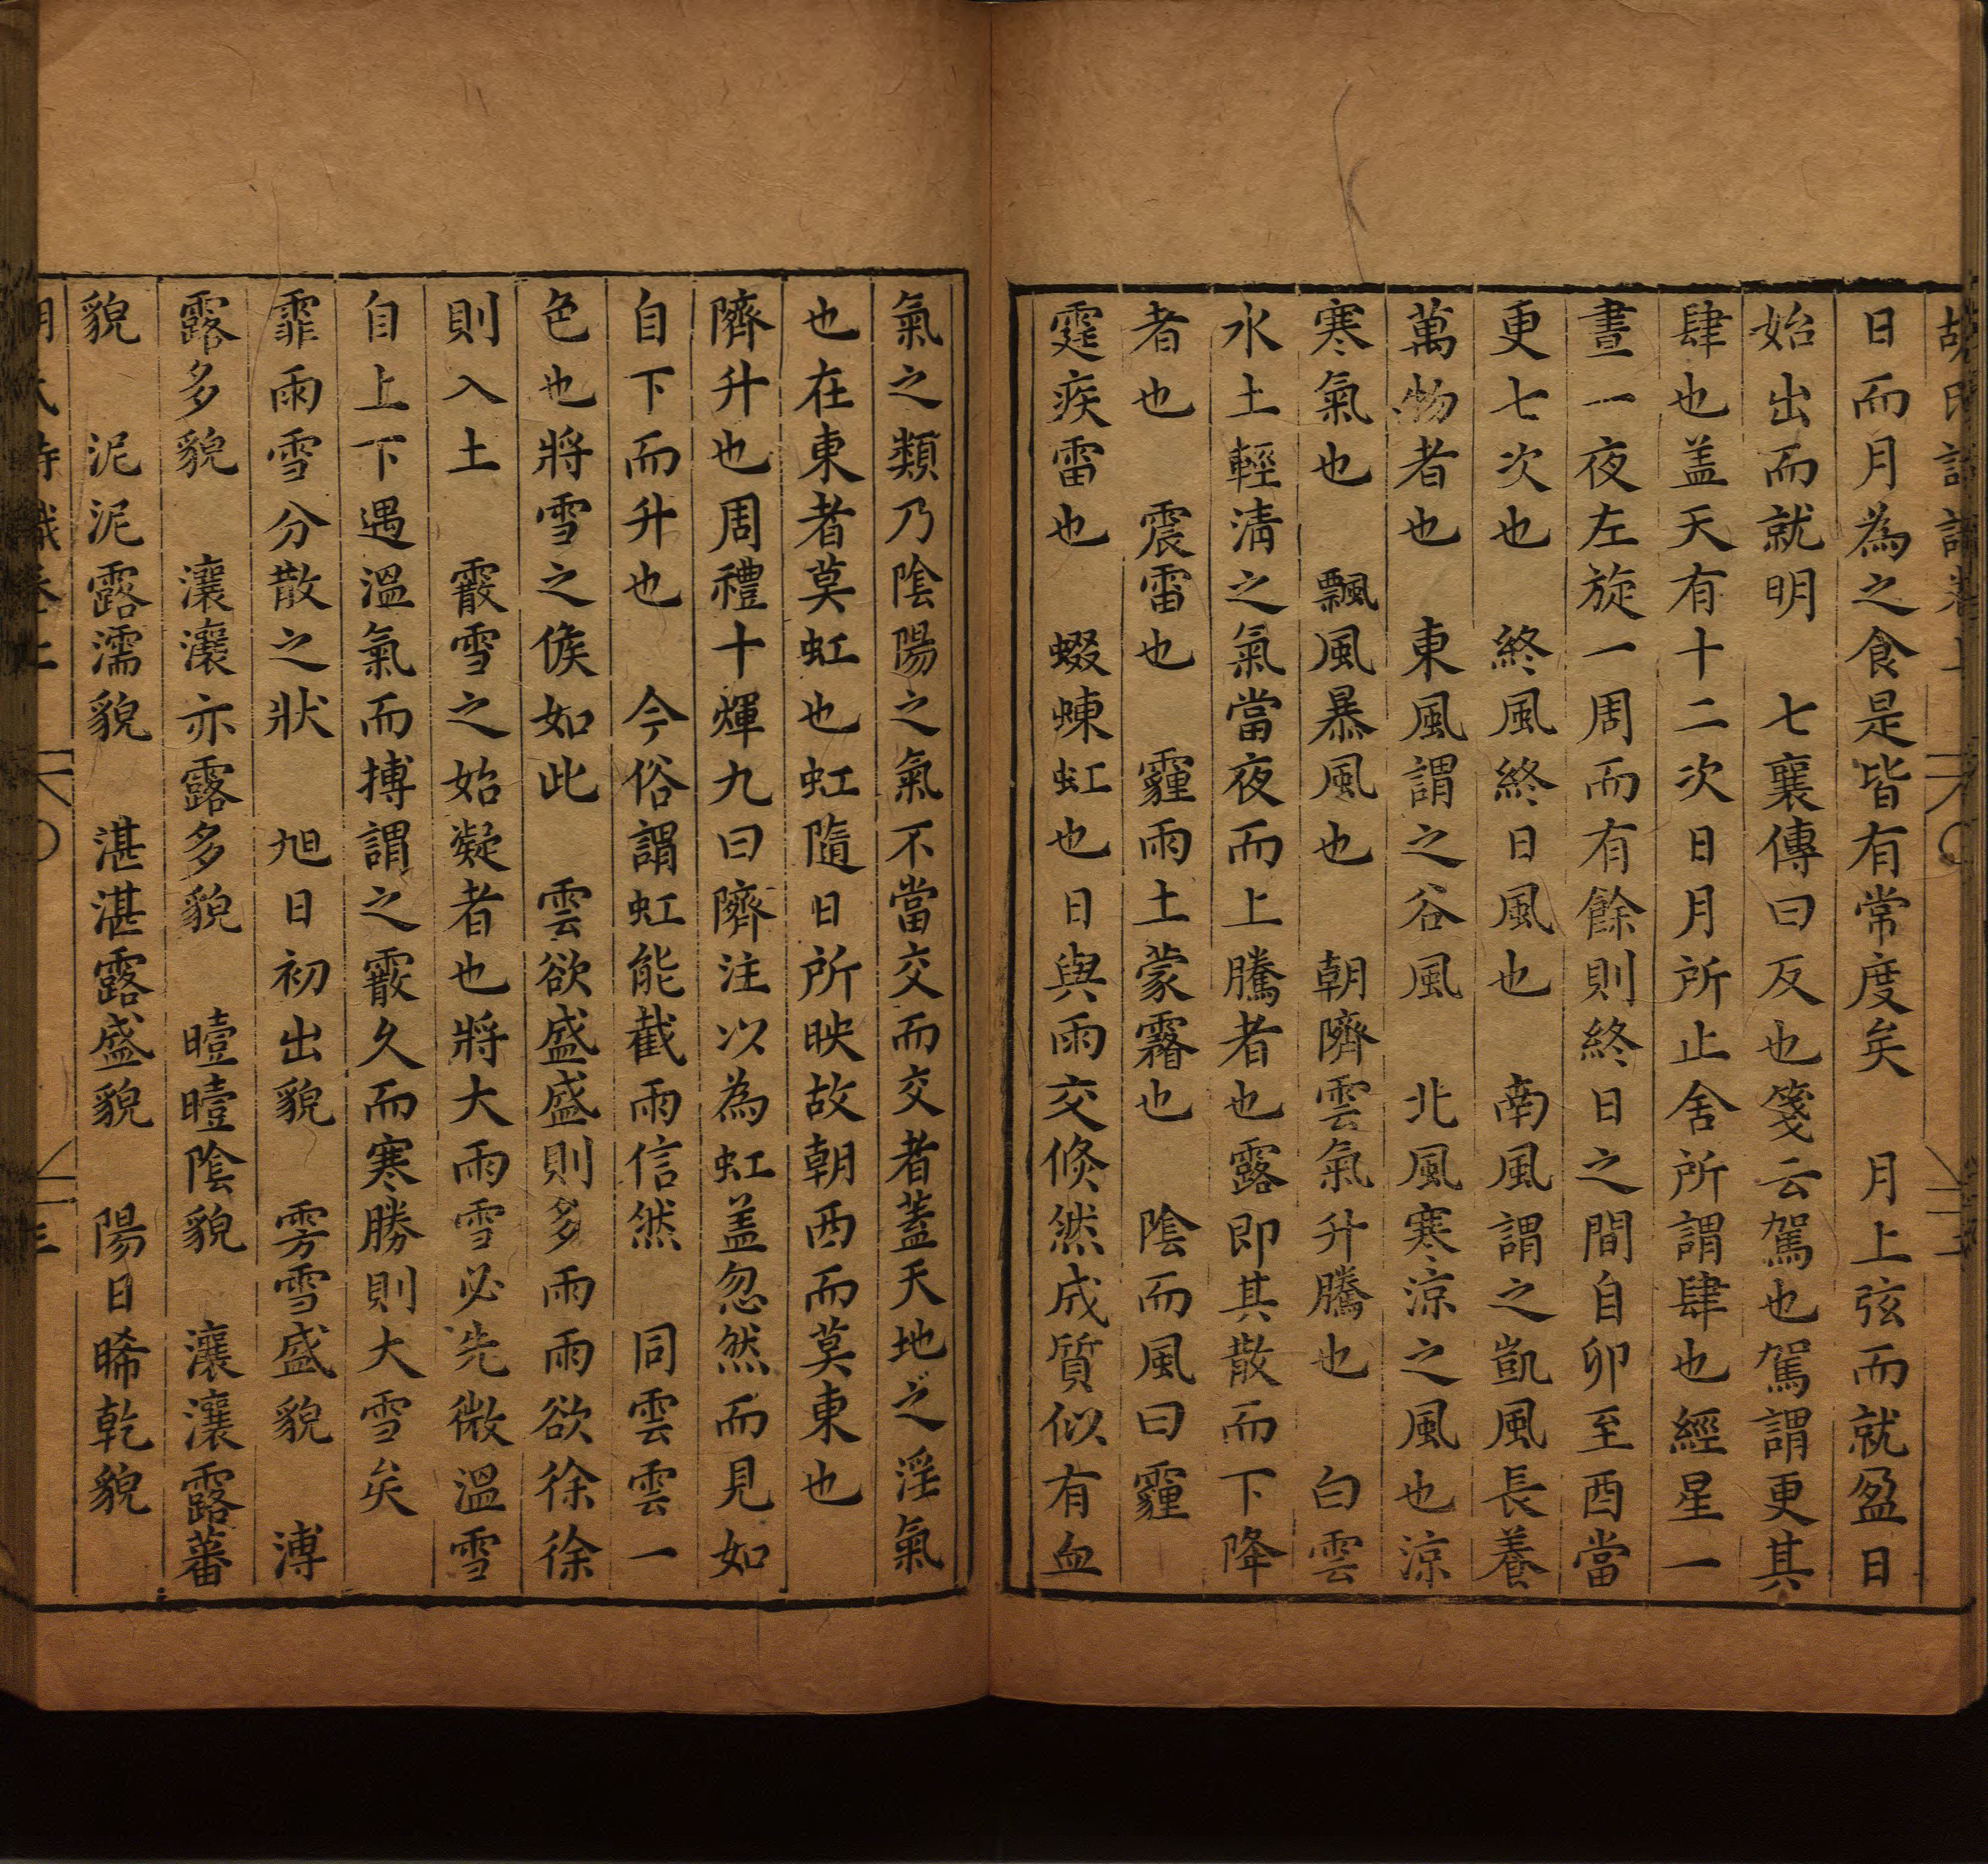 日而月為之食是皆有常度矣　月上弦而就盈日
始出而就明　七襄傳曰反也箋云駕也駕謂更其
肆也盖天有十二次日月所止舍所謂肆也經星一
晝一夜左旋一周而有餘則終日之間自卯至酉當
更七次也　終風終日風也　南風謂之凱風長養
萬物者也　東風謂之谷風　北風寒涼之風也涼
寒氣也　飄風暴風也　朝隮雲氣升騰也　白雲
水土輕清之氣當夜而上騰者也露即其散而下降
者也　震雷也　霾雨土蒙霧也　陰而風曰霾
霆疾雷也　蝃蝀虹也日與雨交倏然成質似有血
氣之類乃陰陽之氣不當交而交者蓋天地之淫氣
也在東者莫虹也虹隨日所映故朝西而莫東也
隮升也周禮十煇九曰隮注以為虹盖忽然而見如
自下而升也　今俗謂虹能截雨信然　同雲雲一
色也將雪之候如此　雲欲盛盛則多雨雨欲徐徐
則入土　霰雪之始凝者也將大雨雪必先微溫雪
自上下遇溫氣而摶謂之霰久而寒勝則大雪矣
霏雨雪分散之狀　旭日初出貌　雱雪盛貌　漙
露多貌　瀼瀼亦露多貌　曀曀陰貌　瀼瀼露蕃
貌　泥泥露濡貌　湛湛露盛貌　陽日晞乾貌